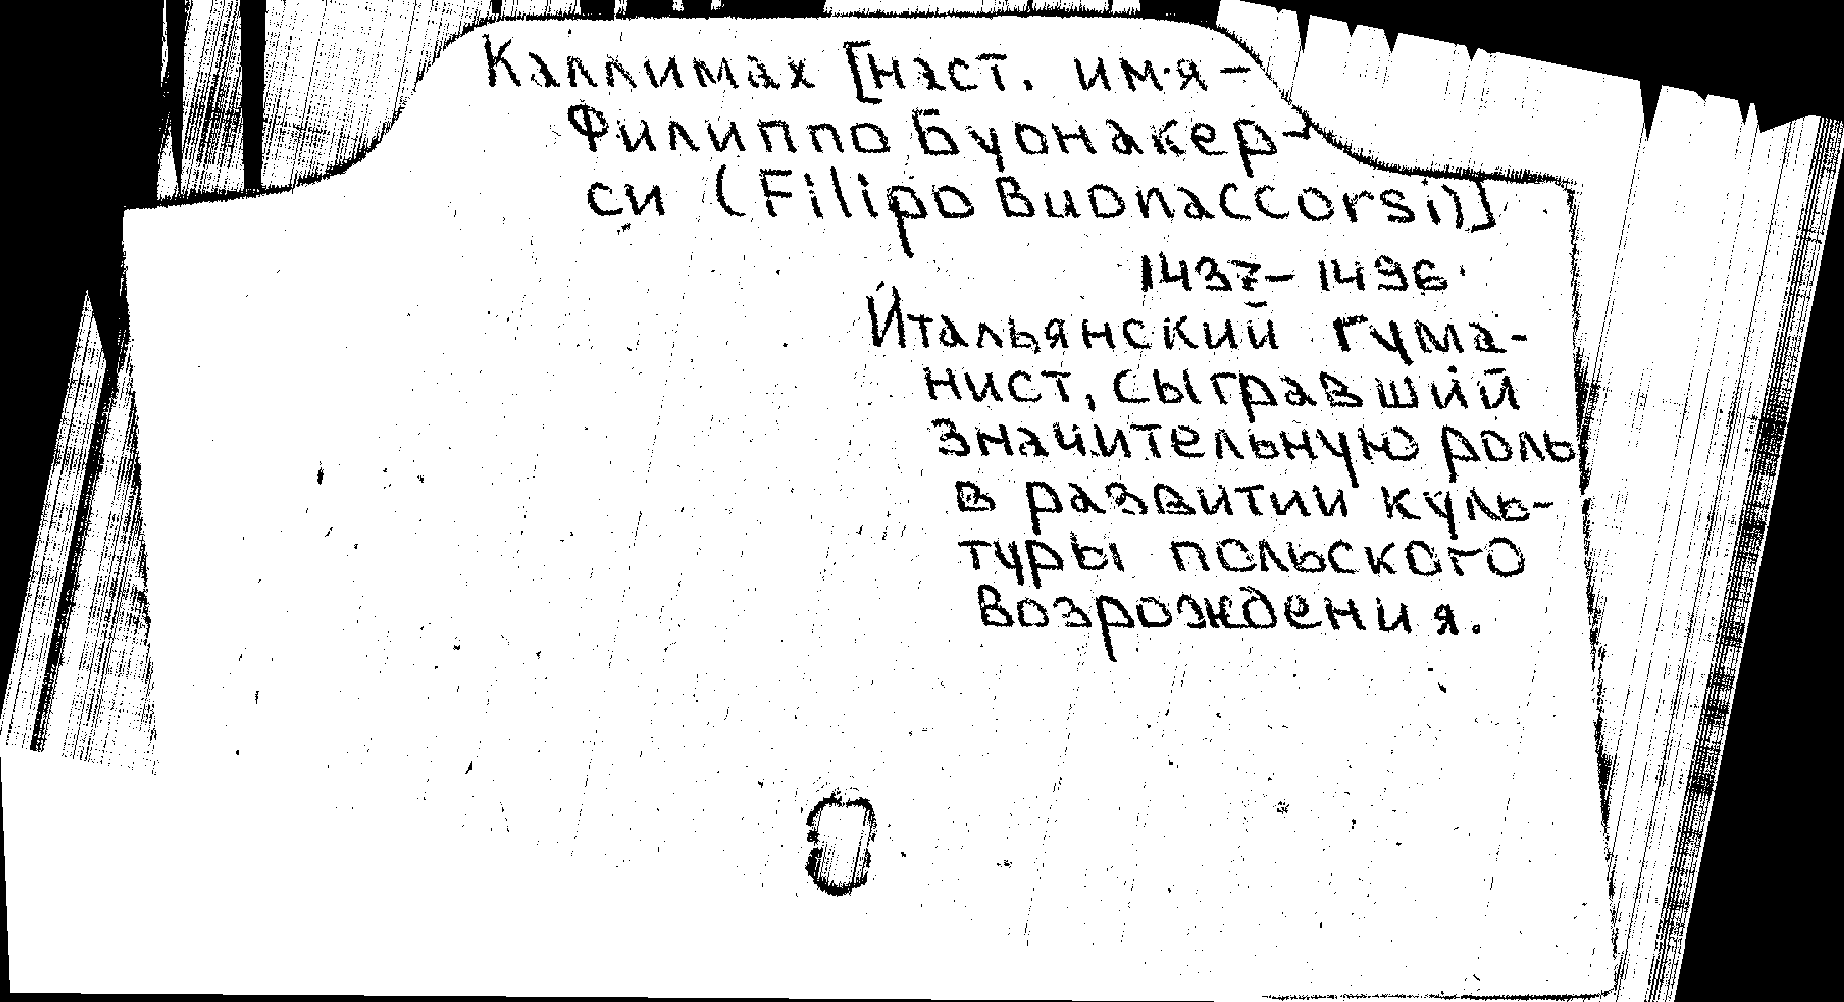 Каллимах [наст. имя –
Филиппо Буонакер-
си (Filipo Buonaccorsi)]
1437 – 1496.
Итальянский гума-
нист, сыгравший
значительную роль
в развитии куль-
туры польского
Возрождения.